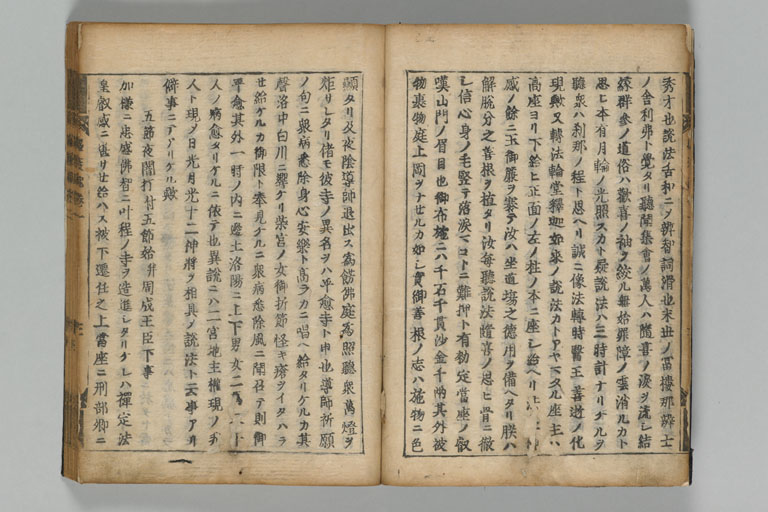 秀才也説法吉和ニメ辨智詞滑也末世ノ冨樓那薛士
ノ舎利弗ト覺タリ聽聞集會ノ萬人ハ随喜ノ涙ヲ流シ結
縁群参ノ道俗ハ歡喜ノ袖ヲ絞ル無始罪障ノ雲消ルカト
思ヒ本有月輪ノ光照スカト疑説法ハ三時計ナリケルヲ
聽衆ハ刹那ノ程ト思ヘリ誠ニ像法轉時醫王善逝ノ化
現歟又轉法輪堂釋迦如來ノ説法カトアヤマタル座主ハ
高座ヨリ下給ヒ正面ノ左ノ柱ノ本ニ座シ給ヘリ法
感ノ餘ニ玉御簾ヲ寨テ汝ハ坐道場之德用ヲ備ヘタリ朕ハ
解脱分之善根ヲ植タリ汝毎聽説法随喜ノ思ヒ骨ニ徹
シ信心身ノ毛竪テ落涙マコトニ難押ト有勅定當座ノ叡
嘆山門ノ眉目也御布施ニハ千石千貫沙金千両其外被
物裹物庭上岡ヲナセルカ如シ實御善根ノ志ハ施物ニ色
顯タリ及夜陰導師退出ス爲餝佛庭爲照聽衆萬燈ヲ
炬リレタリ偖モ彼寺ノ異名ヲハ平愈寺ト申也導師祈願
ノ句ニ衆病悉除身心安樂ト高ラカニ唱ヘ給タリケルカ其
聲洛中白川ニ響ケリ柴宮ノ女御折節怪キ瘡ヲイタハラ
セ給ケルカ御限ト奉見ケルニ衆病悉除風ニ聞召テ則御
平愈其外一時ノ内ニ邊土洛陽ニ上下男女二百八十
人ノ病愈タリケルニ依テ也異説ニハ二宮地主權現ノ
人ト現メ日光月光十二神將ヲ相具メ説法ト云事アリ
僻事ニテアリケル歟
五節夜闇打付五節始并周成王臣下事
加様ニ忠盛佛智ニ叶程ノ寺ヲ造進レタリケレハ禪定法
皇叡感ニ堪サセ給ハス被下遷任之上當座ニ刑部卿ニ